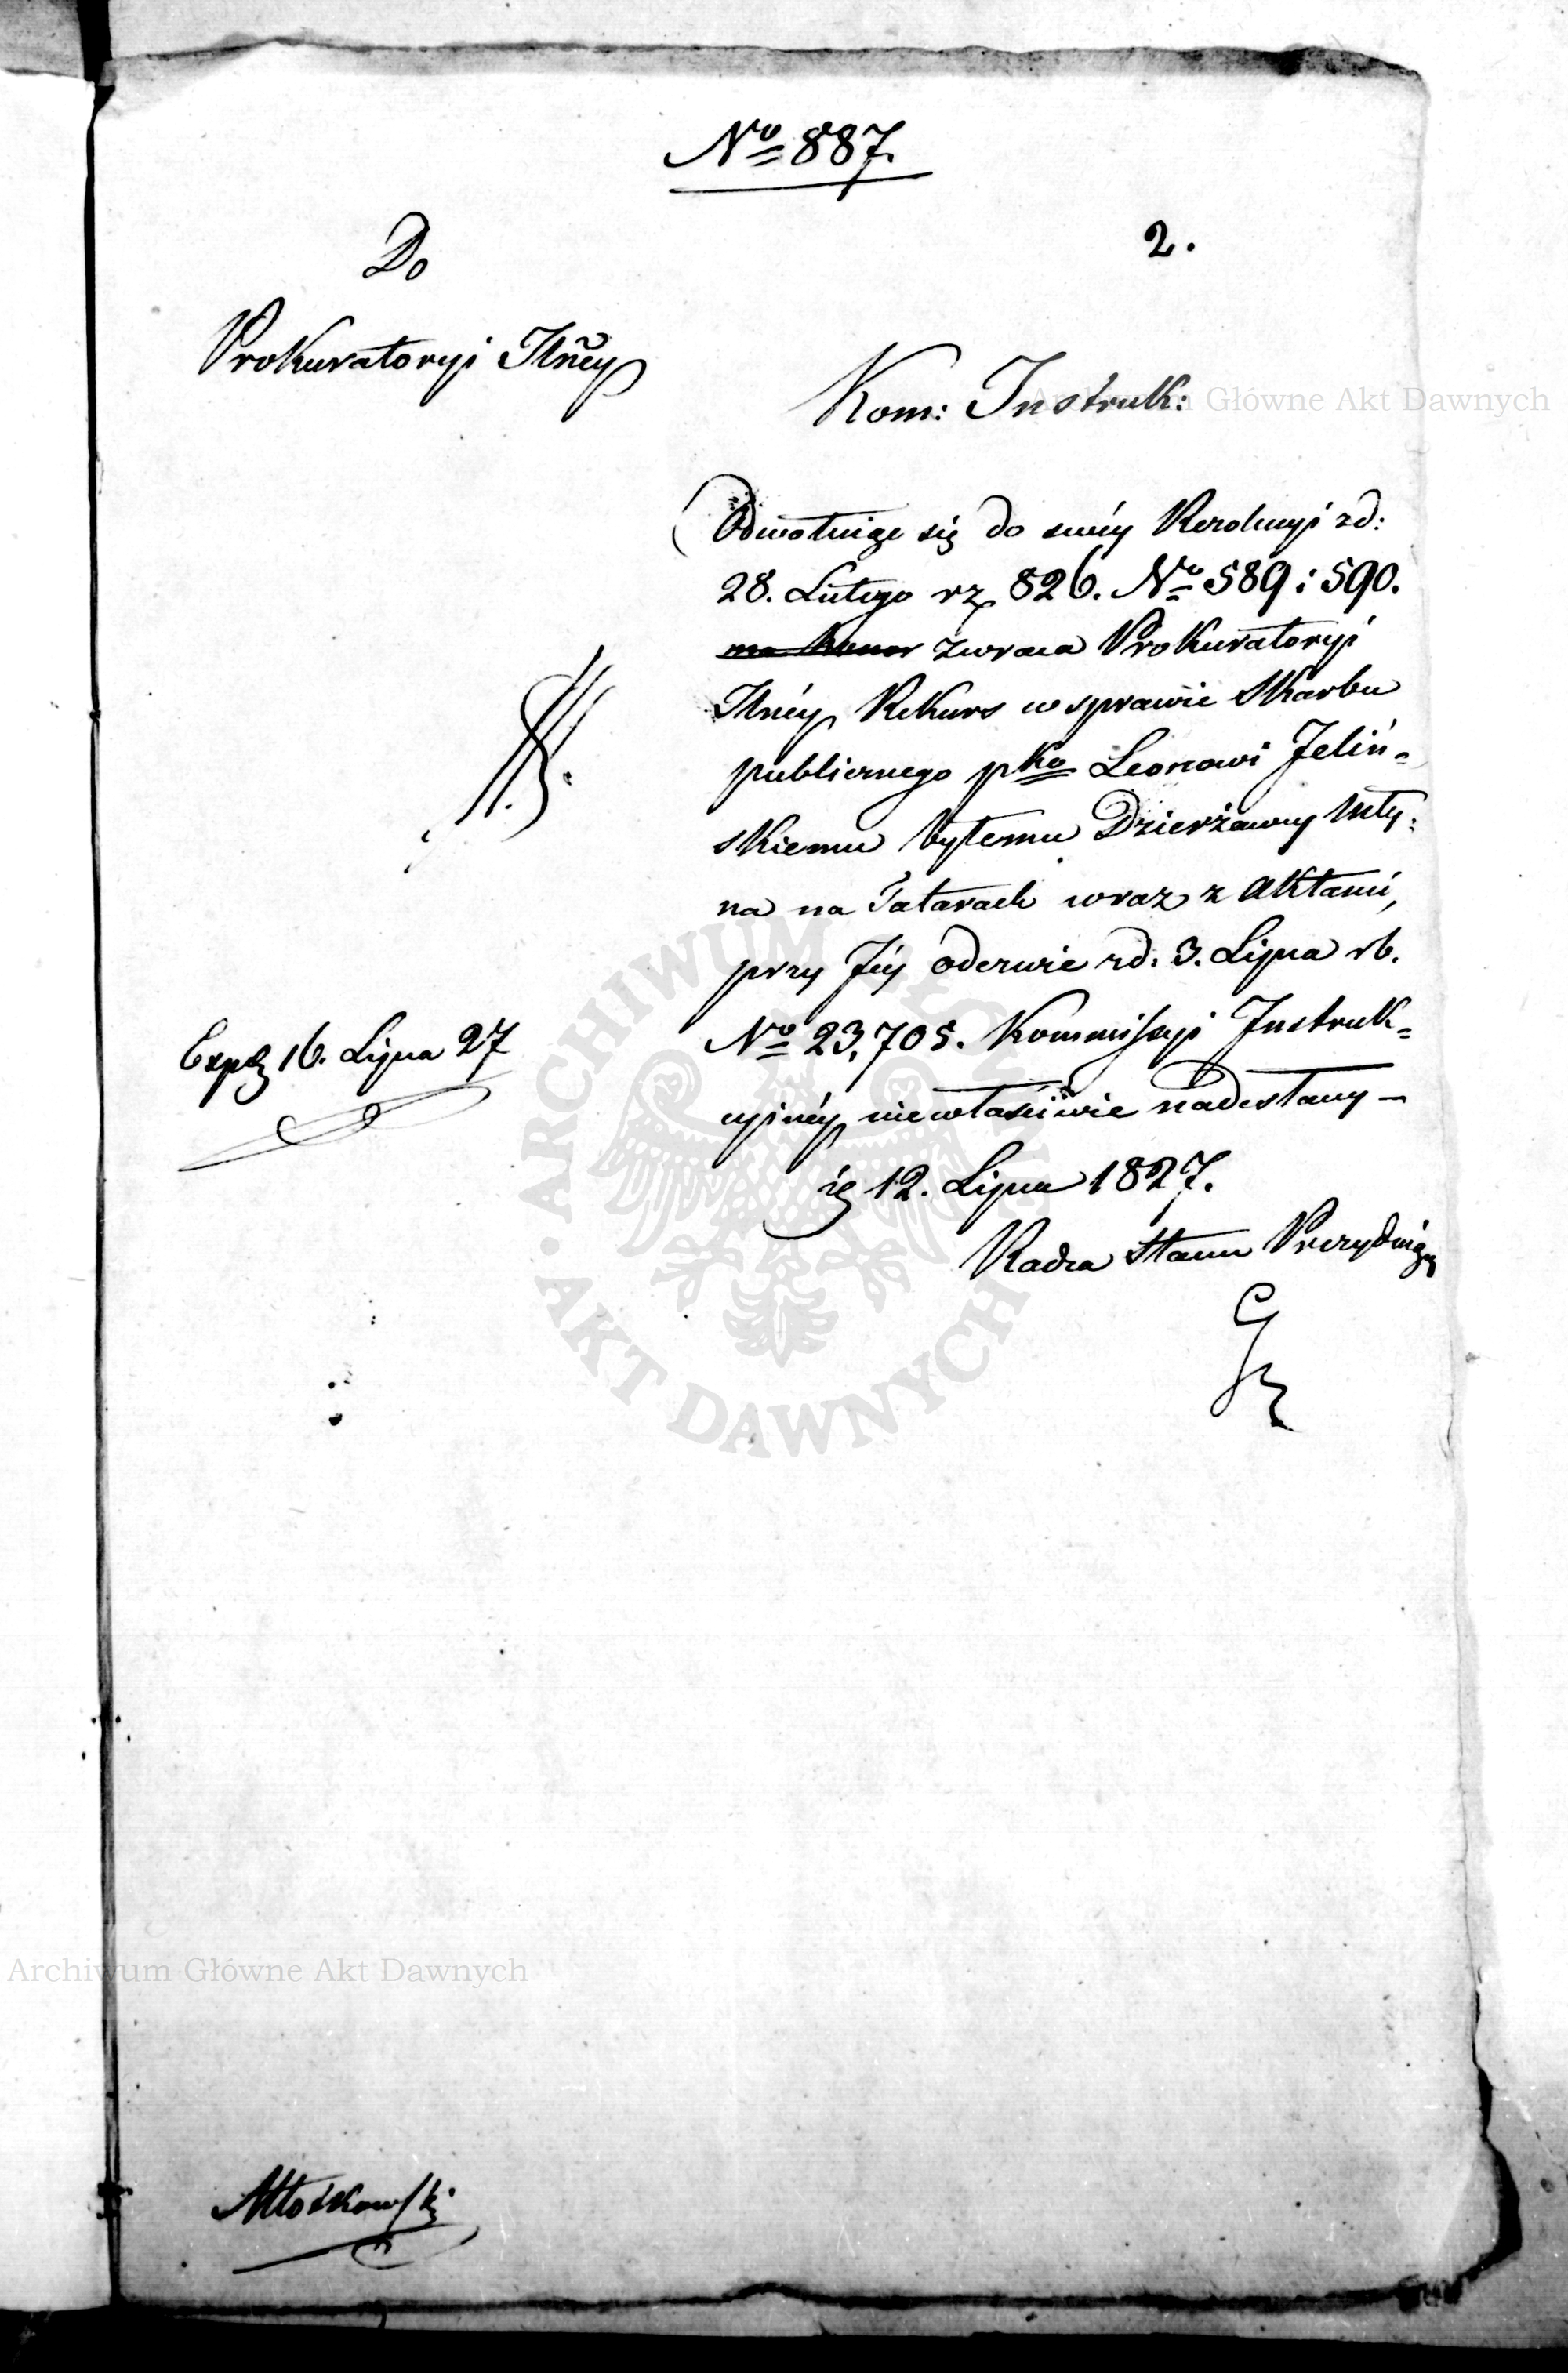 No 887.
2.
Do
Prokuratoryi Jlnéy
Kom: Instruk:
Odwołuiąc się do swéy Rezolucyi zd:
28. Lutego rz 826. No 589 i 590.
zwraca Prokuratoryi
Jlnéy Rekurs w sprawie Skarbu
publicznego pko Leonowi Jeliń=
skiemu byłemu Dzierżawcy Mły:
na na Tatarach wraz z Aktami,
przy Jéy odezwie zd. 3. Lipca rb.
No 23,705. Kommissyi Instruk=
cyinéy niewłaściwie nadesłany —
12. Lipca 1827.
Radca Stanu Prezyduiący
Exp 16. Lipca 27
Młoskowski
Archiwum Główne Akt Dawnych
ARCHIWUM GŁÓWNE
AKT DAWNYCH
Archiwum Główne Akt Dawnych